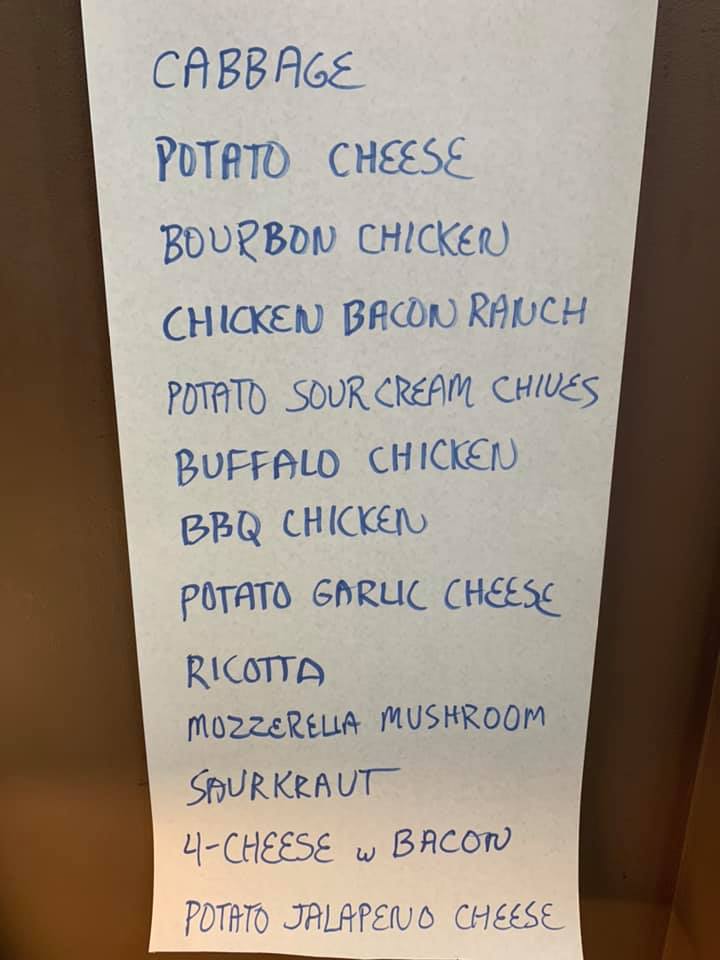 CABBAGE
POTATO CHEESE
BOURBON CHICKEN
CHICKEN BACON RANCH
POTATO SOUR CREAM CHIVES
BUFFALO CHICKEN
BBQ CHICKEN
POTATO GARLIC CHEESE
RICOTTA
MOZZERELLA MUSHROOM
SAURKRAUT
4-CHEESE w BACON
POTATO JALAPENO CHEESE